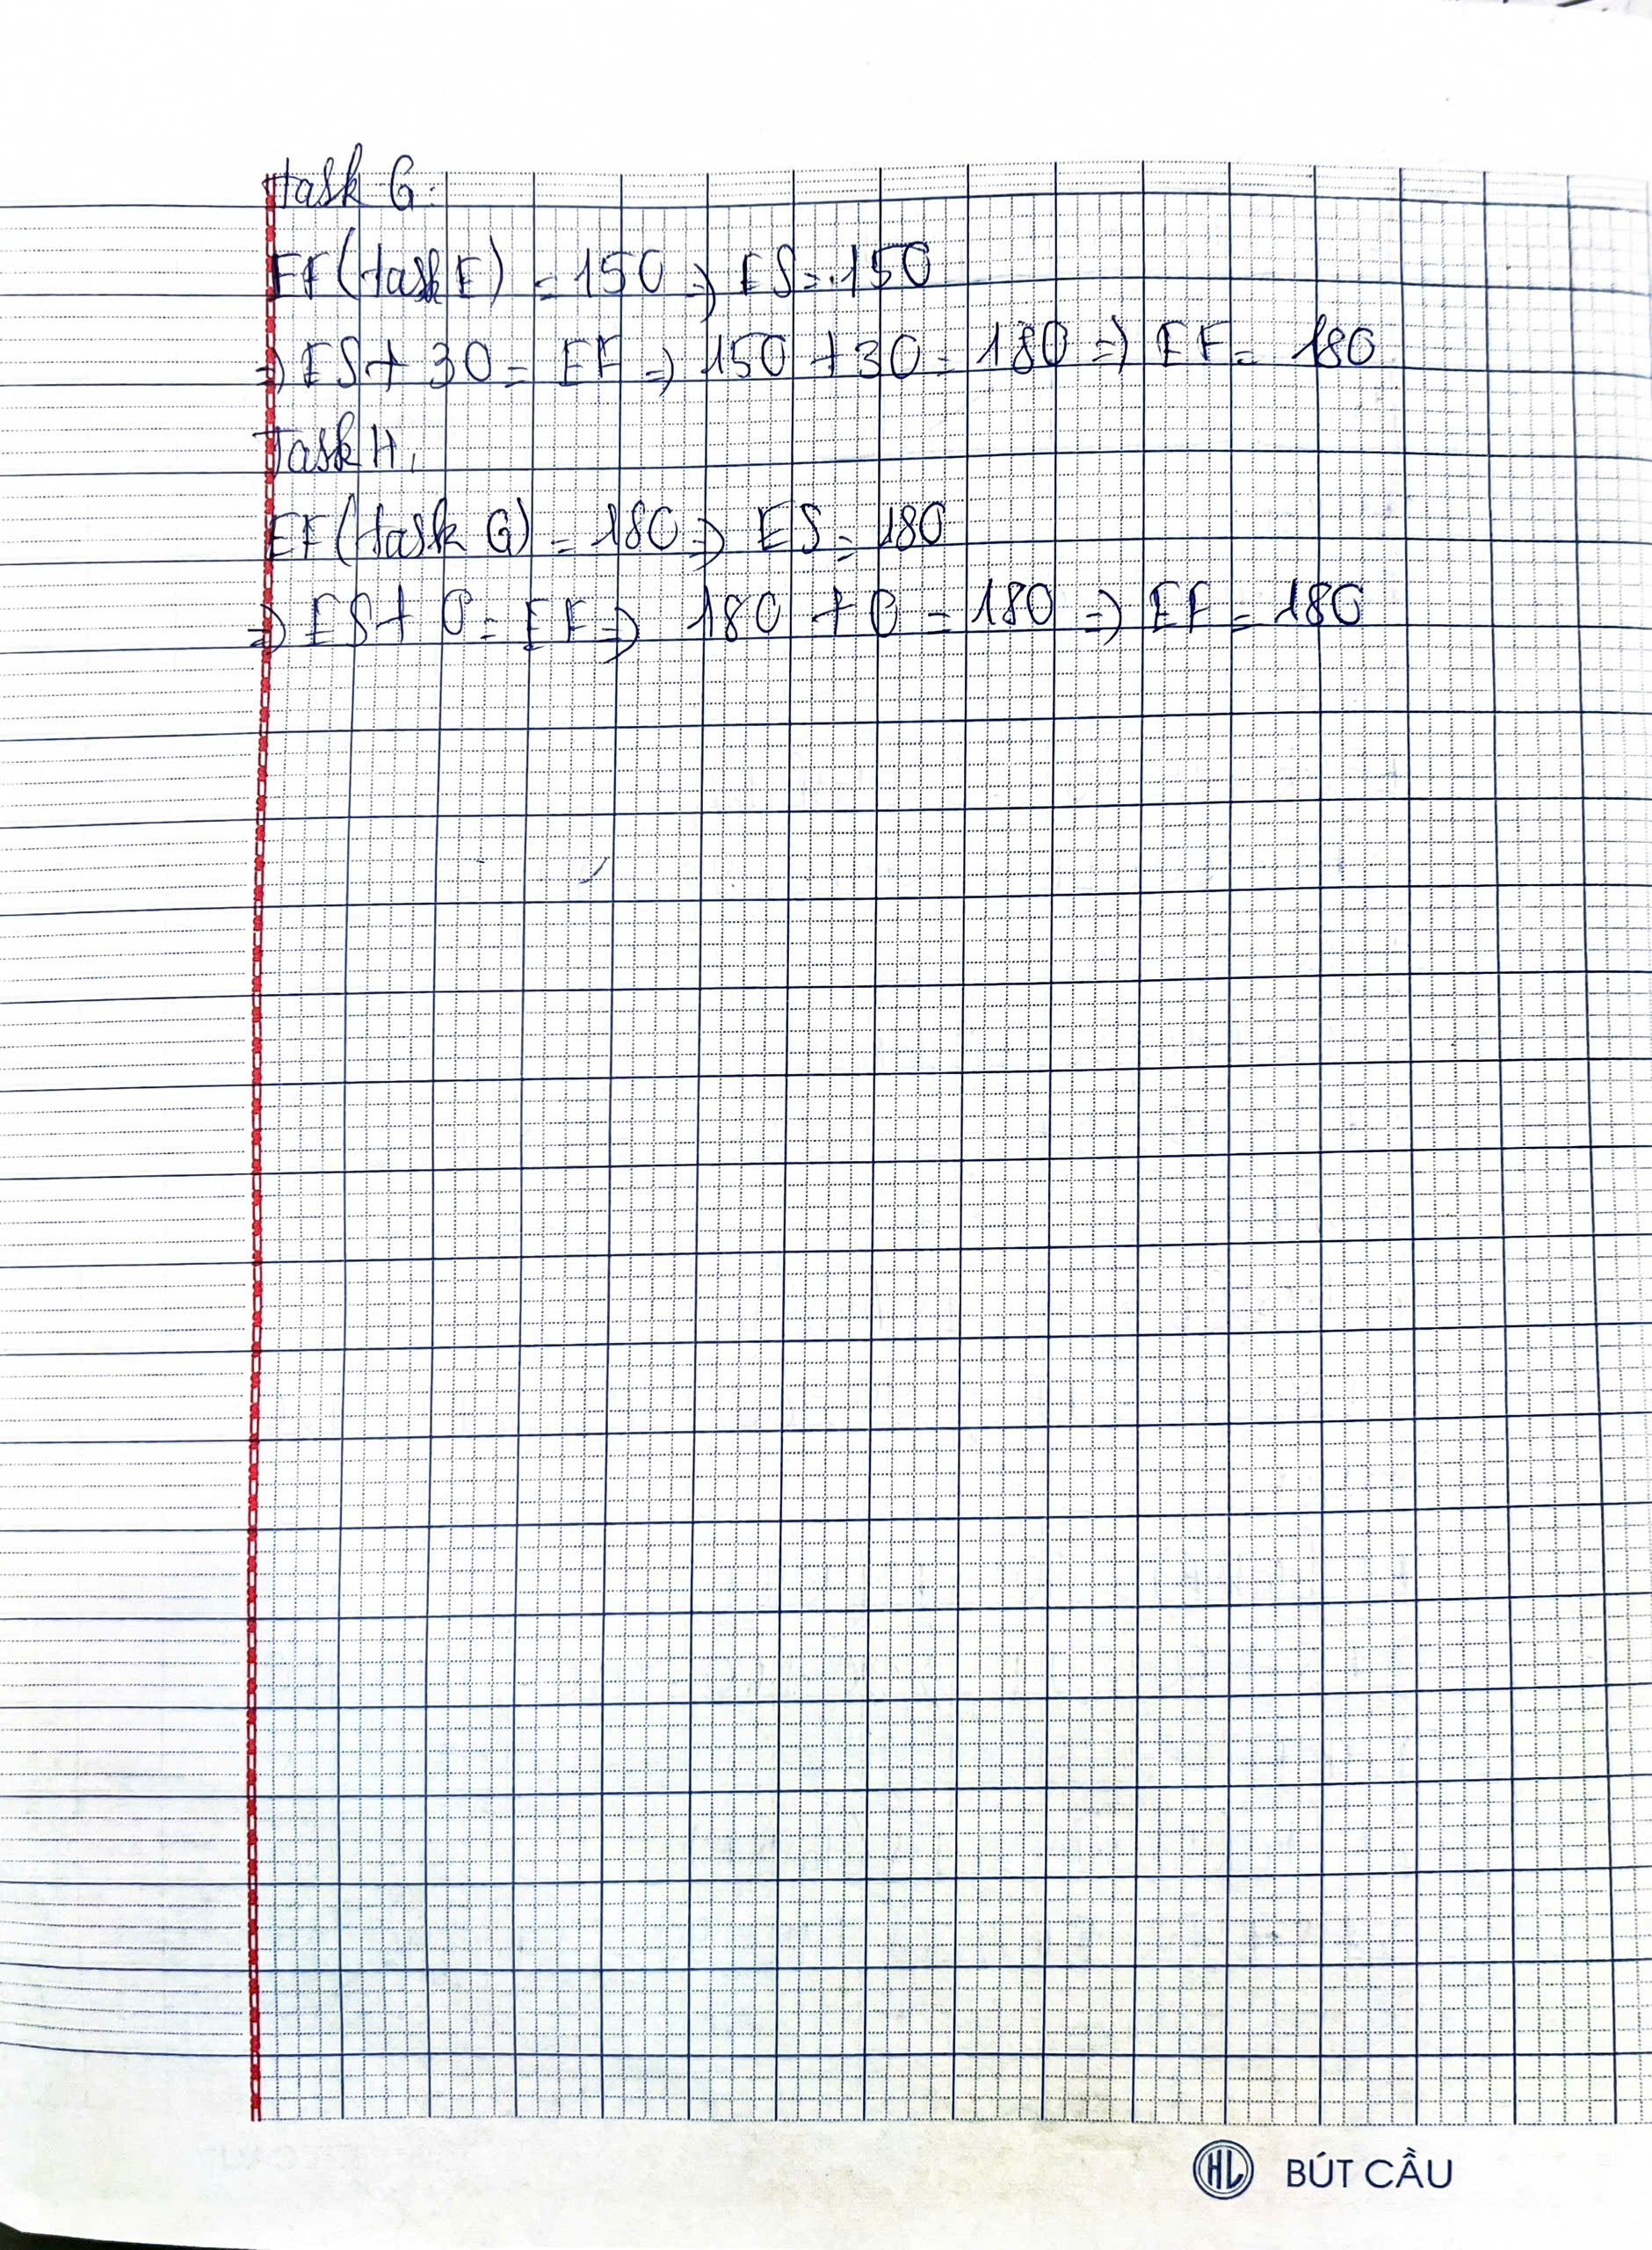 Task G:
EF (task E) = 150 => ES = 150
=> ES + 30 = EF => 150 + 30 = 180 => EF = 180
Task H:
EF (task G) = 180 => ES = 180
=> ES + 0 = EF => 180 + 0 = 180 => EF = 180
HL BÚT CẦU